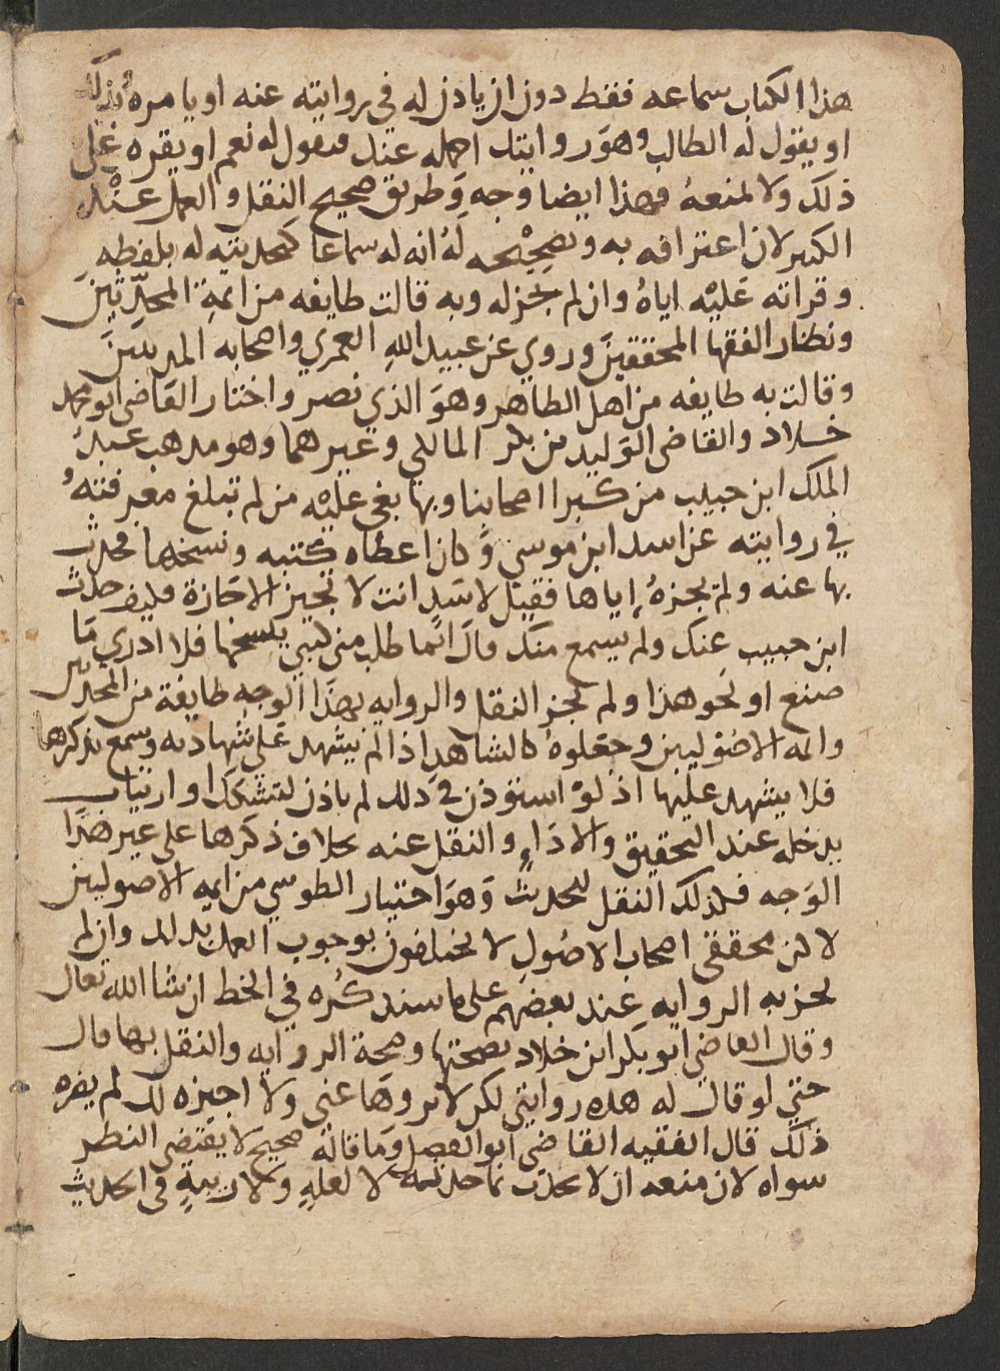 هذا الكتاب سماعه فقط دون ان ياذن له في روايته عنه او يامره بذلك
او يقول له الطالب وهو روايتك احمله عنك فيقول له نعم او يقره على
ذلك ولا لمنعه فهذا ايضا وجه وطريق صحيح النقل والعمل عند
الكثير لان اعترافه به وتصحيحه له انه له سماعا كتحديثه له بلفظه
وقراته عليه اياه وان لم يجزله وبه قالت طايفه من ايمة المحدثين
ونظار الفقها المحققين وروي عن عبيد الله العمري واصحابه المدنيين
وقالت به طايفه من اهل الظاهر وهو الذي نصر واختار القاضي ابو محمد
خلاد والقاضي الوليد بن بكر المالكي وغيرهما وهو مذهب عبد
الملك ابن حبيب من كبرا اصحابنا وبها بغى عليه من لم تبلغ معرفته
في روايته عن اسد ابن موسى وكان اعطاه كتبه ونسخها فحدث
بها عنه ولم يجزه إياها فقيل لاسد انت لا تجيز الاجازة فكيف حدث
ابن حبيب عنك ولم يسمع منك قال انما طلب مني كتبي ينسخها فلا ادري ما
صنع او نحو هذا ولم يجز النقل والروايه بهذا الوجه طايفة من المحدثين
وايمه الاصوليين وجعلوه كالشاهد اذا لم يشهد على شهادته وسمع يذكرها
فلا يشهد عليها اذ لو استوذن في ذلك لم ياذن لتشكك او ارتياب
يدخله عند التحقيق والاداء والنقل عنه بخلاف ذكرها على غير هذا
الوجه فكذلك النقل للحديث وهو اختيار الطوسي من ايمه الاصوليين
لا كن محققي اصحاب الاصول لا يختلفون بوجوب العمل بذلك وان لم
تجز به الروايه عند بعضهم على ما سنذكره في الخط ان شا الله تعالى
وقال القاضي ابو بكر ابن خلاد بصحتها وصحة الروايه والنقل بها قال
حتى لو قال له هذه روايتي لكن لا تروها عني ولا اجيزه لك لم يضره
ذلك قال الفقيه القاضي ابو الفضل وما قاله صحيح لا يقتضي النظر
سواه لان منعه ان لا يحدث بما حدثه لا لعلةٍ ولا ريبةٍ في الحديث